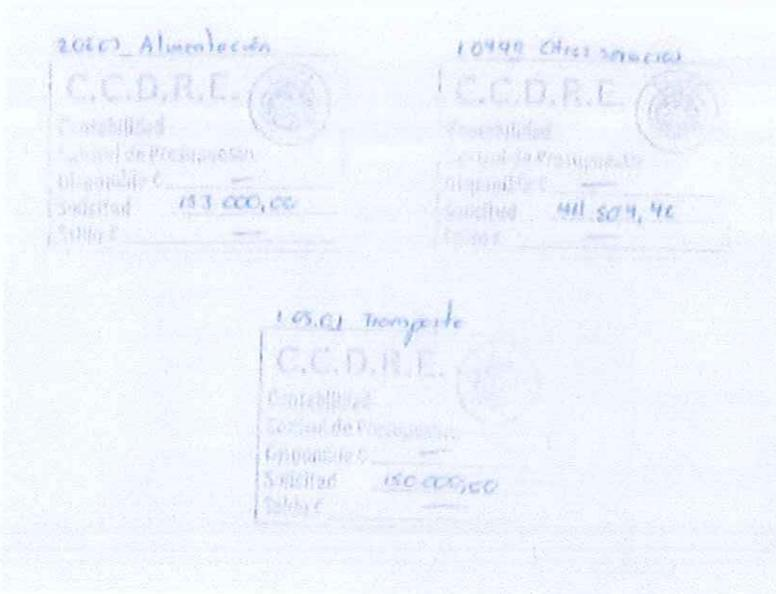 Alimentación
C.C.D.R.E.
Contabilidad
Control de Presupuesto
Disponible ¢ —
Solicitud 153 000,00
Saldo ¢ —
1 04 99 Otros servicios
C.C.D.R.E.
Contabilidad
Control de Presupuesto
Disponible ¢ —
Solicitud
Saldo ¢ —
Transporte
C.C.D.R.E.
Contabilidad
Control de Presupuesto
Disponible ¢ —
Solicitud 150 000,00
Saldo ¢ —